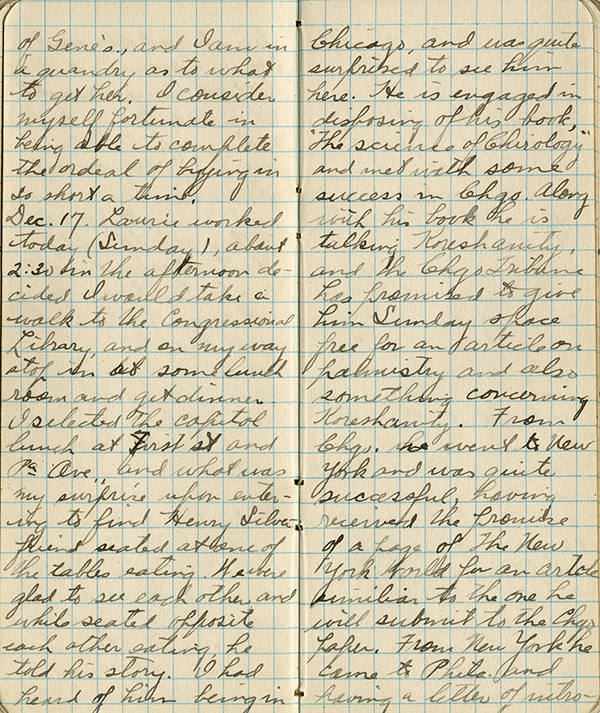 of Gene's., and I am in
a quandry as to what
to get her. I consider
myself fortunate in
being able to complete
the ordeal of buying in
so short a time.
Dec. 17. Laurie worked
today (Sunday), about
2:30 in the afternoon de-
cided I would take a
walk to the Congressional
Library, and on my way
stop in at some lunch
room and get dinner
I selected the capitol
lunch at First st and
Pa Ave., and what was
my surprise upon enter-
ing to find Henry Silver-
friend seated at one of
the tables eating. We were
glad to see each other and
while seated opposite
each other eating, he
told his story. I had
heard of him being in
Chicago, and was quite
surprised to see him
here. He is engaged in
disposing of his book,
"The science of Chirology"
and met with some
success in Chgo. Along
with his book he is
talking Koreshanity,
and the Chgo Tribune
has promised to give
him Sunday space
free for an article on
palmistry and also
something concerning
Koreshanity. From
Chgo. he went to New
York and was quite
successful, having
received the promise
of a page of The New
York World for an article
similiar to the one he
will submit to the Chgo
paper. From New York he
came to Phila. and
having a letter of intro-